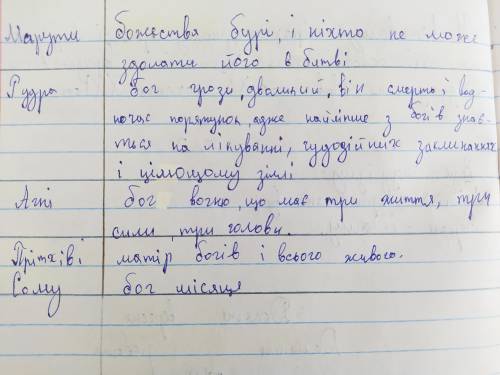 Марути божества бурі, і ніхто не може
здолати його в битві
Рудра - бог грози, дволиций, він смерть і вод-
ночас порятунок, адже найліпше з богів знає-
ться на лікуванні, чудодійних заклинаннях
і цілющому зіллі
Агні бог вогню, що має три життя, три
сили, три голови.
Прітхіві матір богів і всього живого.
Сому бог місяця